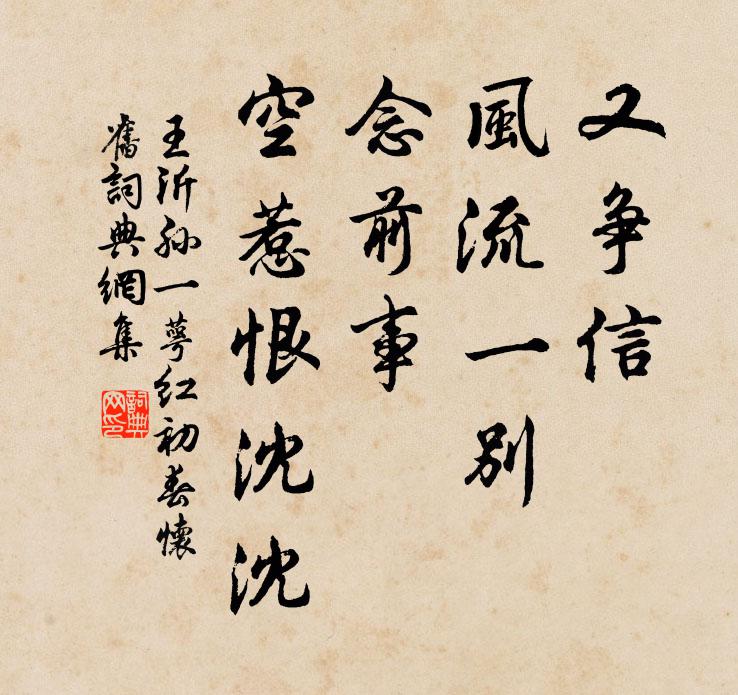 又争信
風流一别
念前事
空惹恨沈沈
王沂孙一萼红初春懷
舊詞典網集
詞典
网印